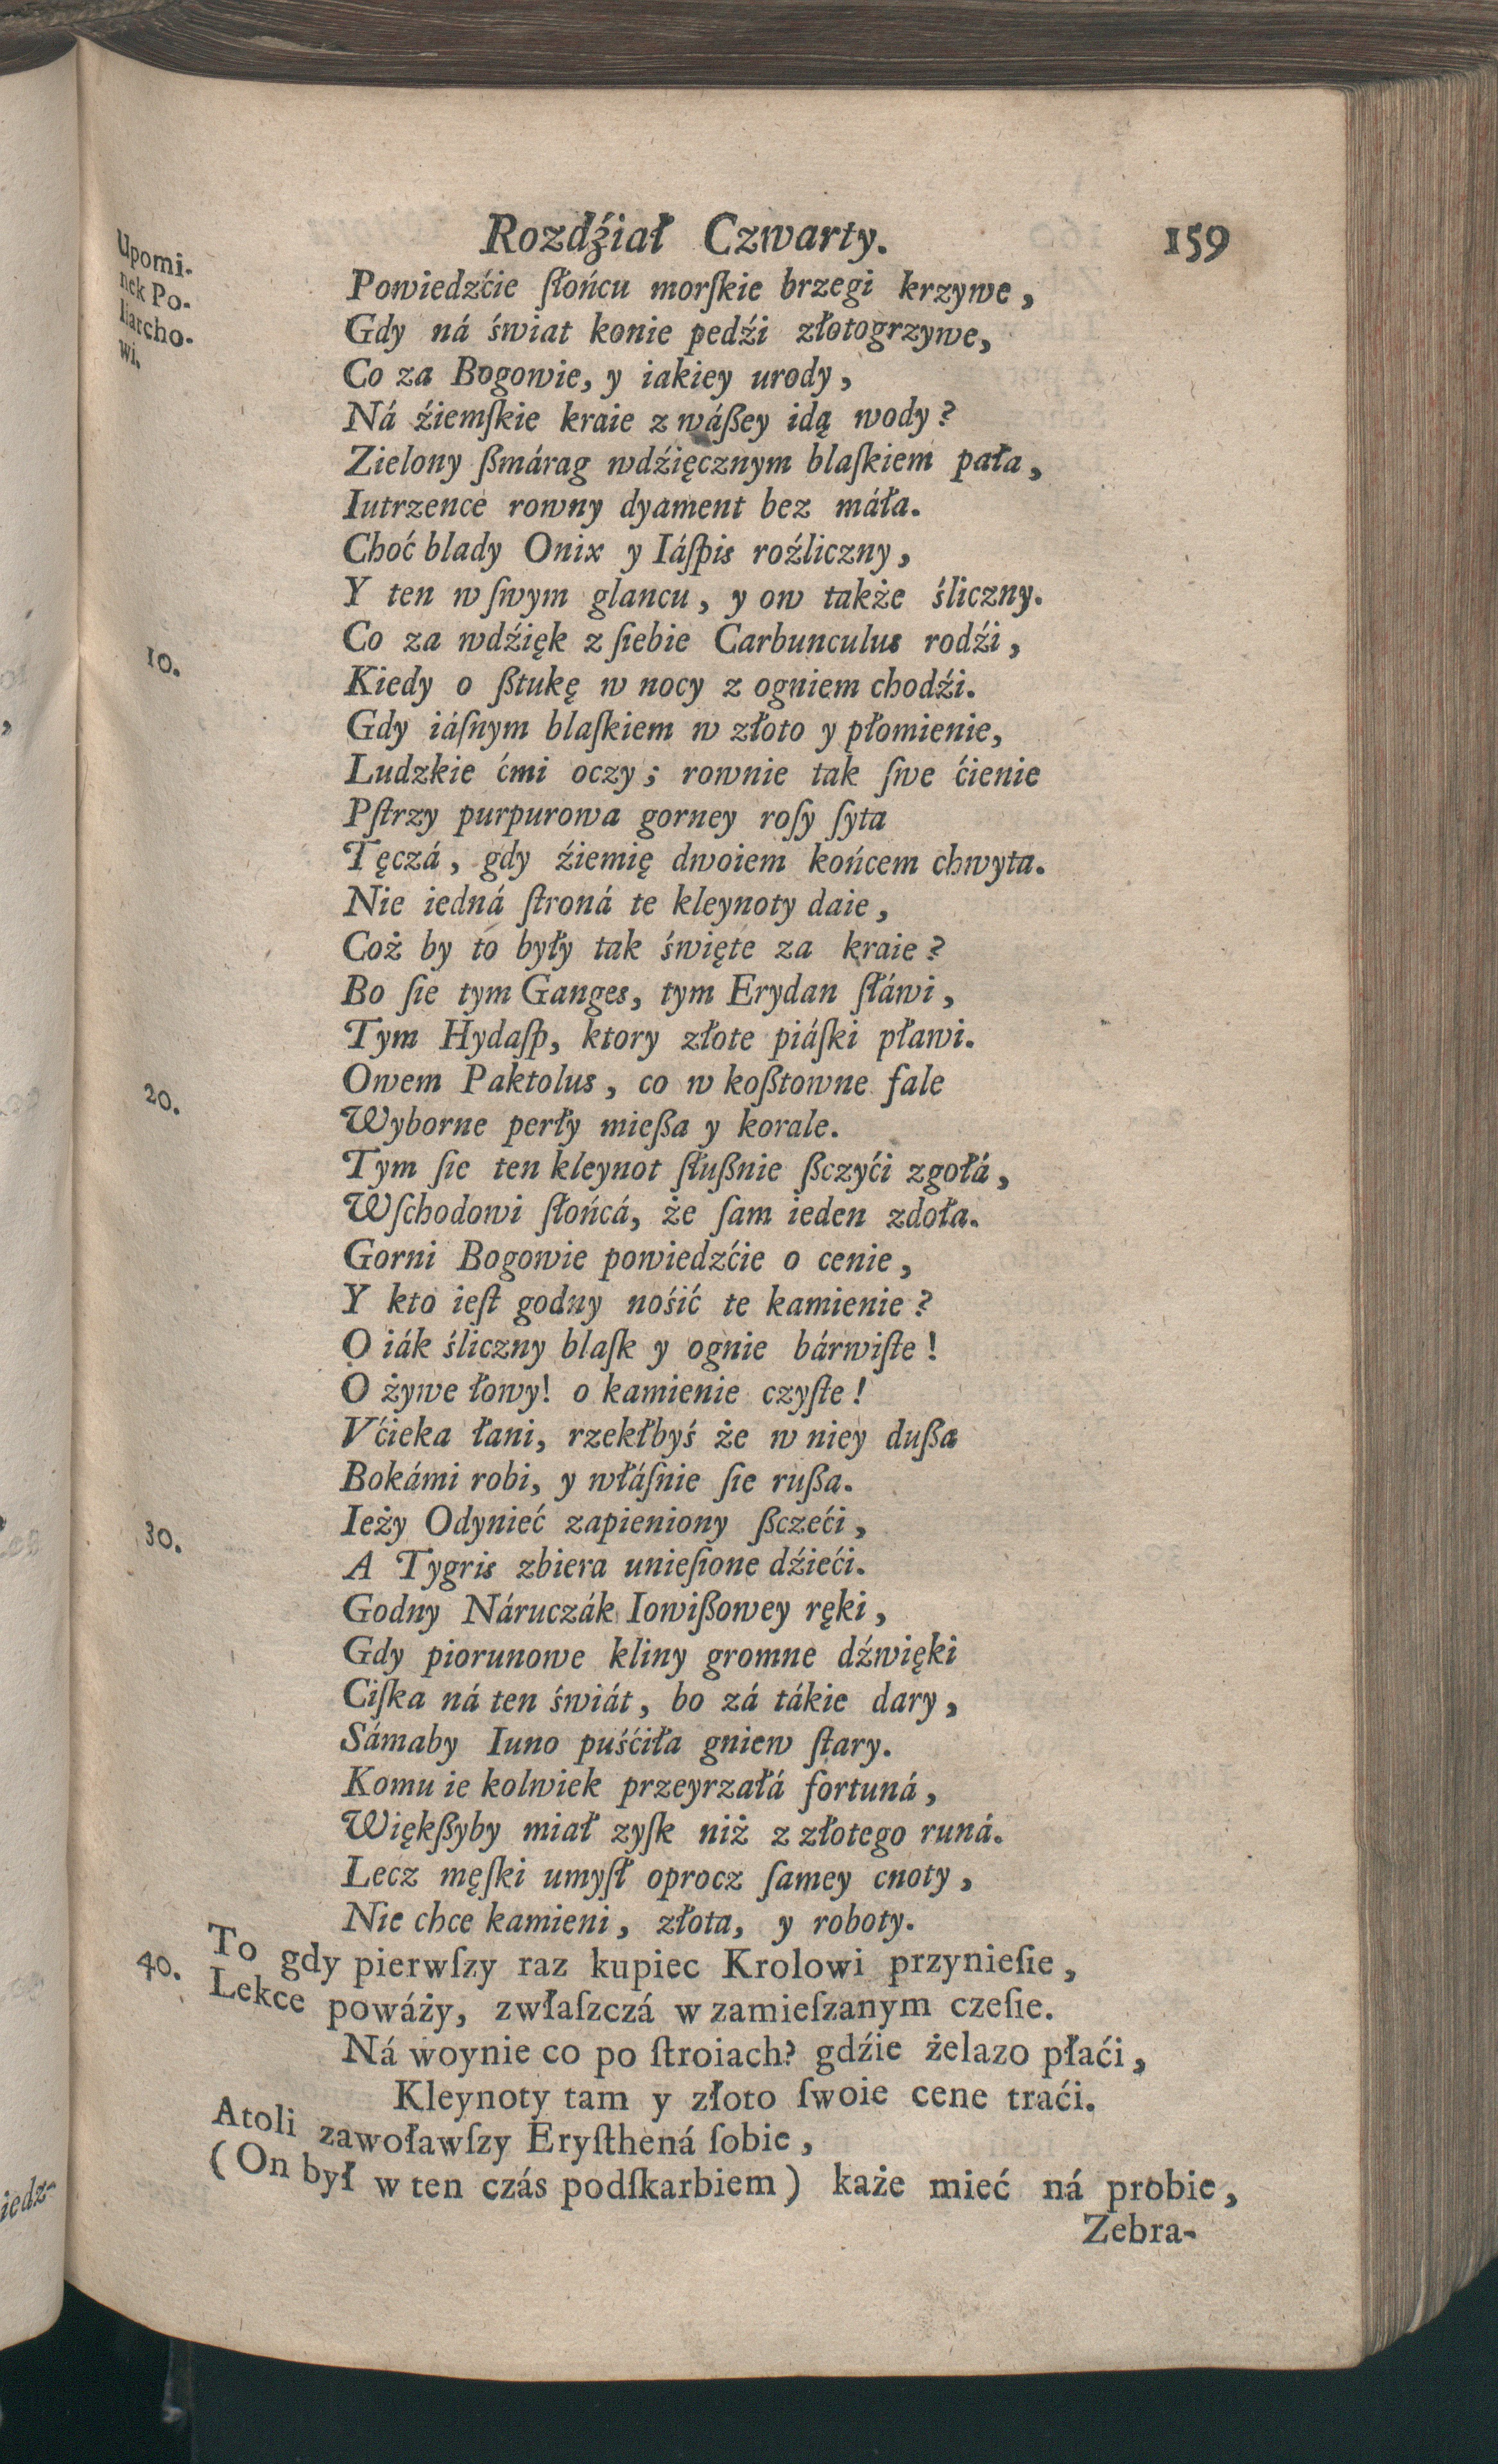 Rozdźiał Czwarty. 159
Upomi-
nek Po-
liarcho-
wi.
Powiedzćie ſłońcu morſkie brzegi krzywe,
Gdy ná świat konie pedźi złotogrzywe,
Co za Bogowie, y iakiey urody,
Ná źiemſkie kraie z wáßey idą wody?
Zielony ßmárag wdźięcznym blaſkiem pała,
Iutrzence rowny dyament bez máła.
Choć blady Onix y Iáſpis roźliczny,
Y ten w ſwym glancu, y ow także śliczny.
Co za wdźięk z ſiebie Carbunculus rodźi,
10. Kiedy o ßtukę w nocy z ogniem chodźi.
Gdy iáſnym blaſkiem w złoto y płomienie,
Ludzkie ćmi oczy; rownie tak ſwe ćienie
Pſtrzy purpurowa gorney roſy ſyta
Tęczá, gdy źiemię dwoiem końcem chwyta.
Nie iedná ſtroná te kleynoty daie,
Coż by to były tak święte za kraie?
Bo ſie tym Ganges, tym Erydan ſłáwi,
Tym Hydaſp, ktory złote piáſki pławi.
Owem Paktolus, co w koßtowne fale
20. Wyborne perły mießa y korale.
Tym ſie ten kleynot ſłußnie ßczyći zgołá,
Wſchodowi ſłońcá, że ſam ieden zdoła.
Gorni Bogowie powiedzćie o cenie,
Y kto ieſt godny nośić te kamienie?
O iák śliczny blaſk y ognie bárwiſte!
O żywe łowy! o kamienie czyſte!
Vćieka łani, rzekłbyś że w niey dußa
Bokámi robi, y włáſnie ſie rußa.
Ieży Odynieć zapieniony ßczeći,
30. A Tygris zbiera unieſione dźieći.
Godny Náruczák Iowißowey ręki,
Gdy piorunowe kliny gromne dźwięki
Ciſka ná ten świát, bo zá tákie dary,
Sámaby Iuno puśćiła gniew ſtary.
Komu ie kolwiek przeyrzałá fortuná,
Więkßyby miał zyſk niż z złotego runá.
Lecz męſki umyſł oprocz ſamey cnoty,
Nie chce kamieni, złota, y roboty.
To gdy pierwſzy raz kupiec Krolowi przynieſie,
40. Lekce powáży, zwłaſzczá w zamieſzanym czeſie.
Ná woynie co po ſtroiach? gdźie żelazo płaći,
Kleynoty tam y złoto ſwoie cene traći.
Atoli zawoławſzy Eryſthená ſobie,
(On był w ten czás podſkarbiem) każe mieć ná probie,
Zebra-
iedz-